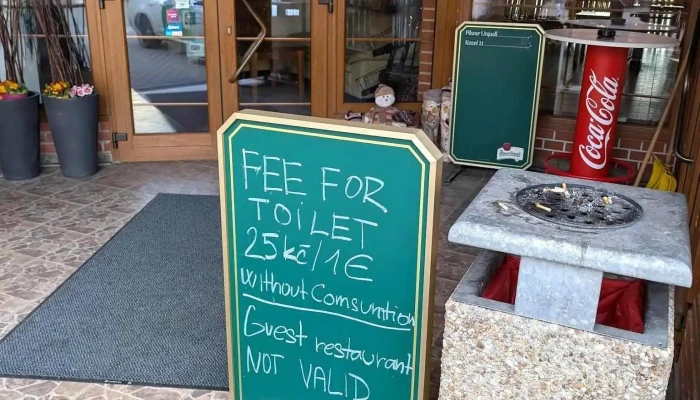 Pilsner Urquell
Kozel 11
Coca-Cola
FEE FOR
TOiLET
25kč/1€
Without Comsumtion
Guest restaurant
NOT VALID